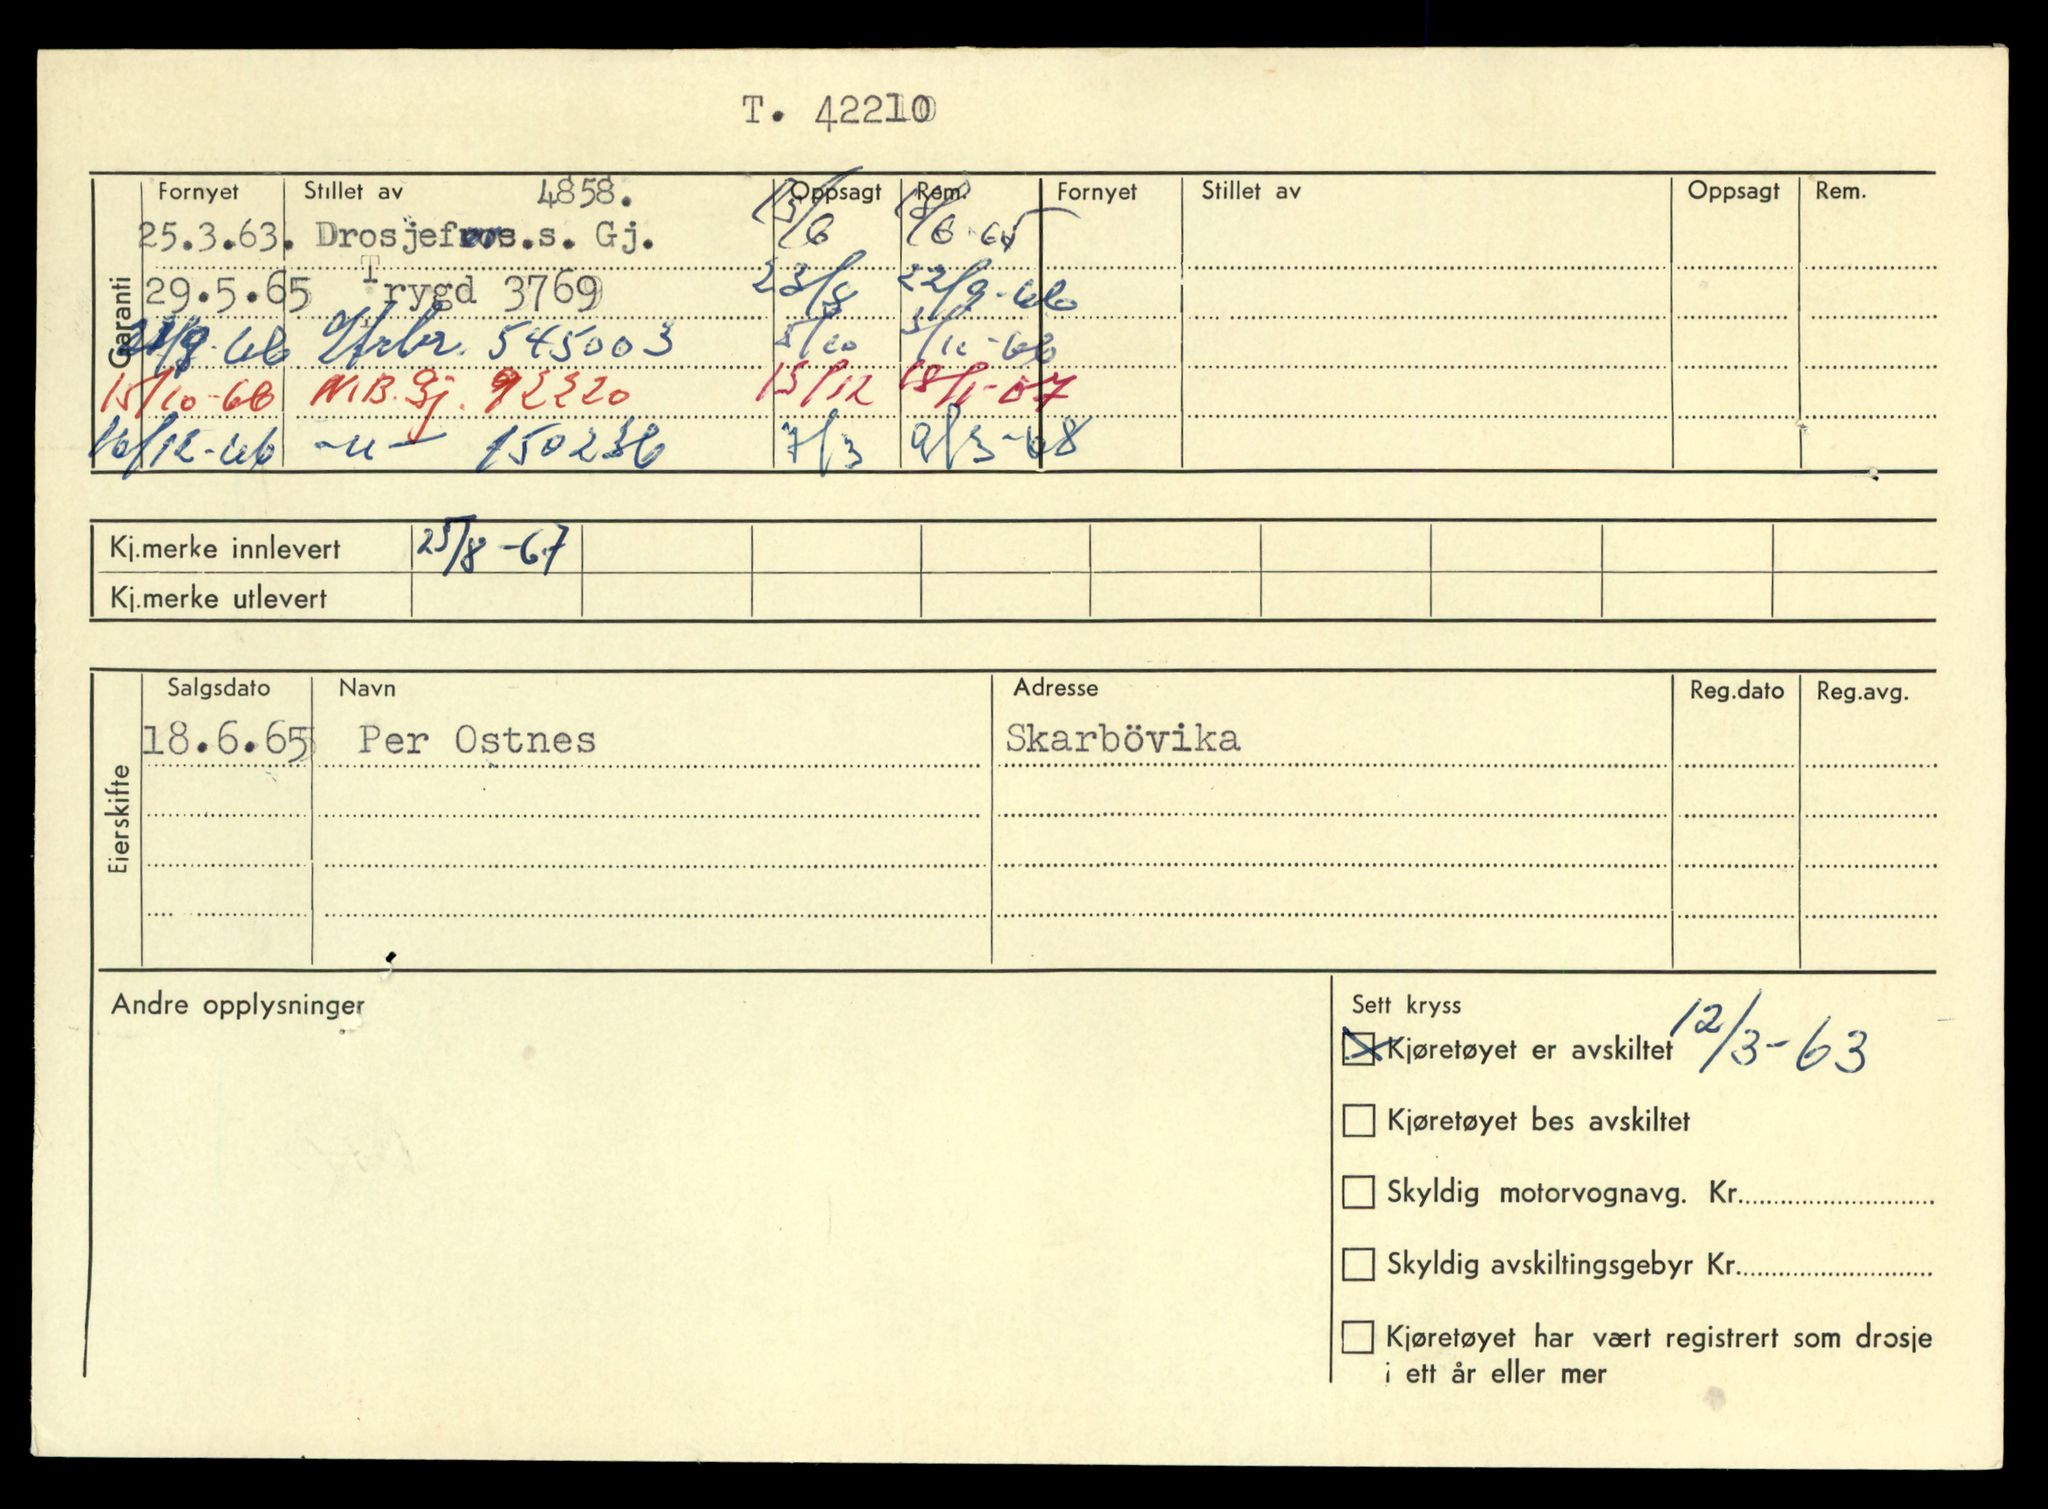 T. 42210
Garanti
Fornyet Stillet av 4858. Oppsagt Rem. Fornyet Stillet av Oppsagt Rem.
25.3.63. Drosjef s.s. Gj. 15/6 18/6-65
29.5.65 Trygd 3769 23/8 22/9-66
/9-66 545003 5/10 5/11-66
15/10-66 N.B.Gj. 92220 15/12 18/1-67
16/12-66 -"- 150236 7/3 9/3-68
Kj.merke innlevert 25/8-67
Kj.merke utlevert
Eierskifte
Salgsdato Navn Adresse Reg.dato Reg.avg.
18.6.65 Per Ostnes Skarbövika
Andre opplysninger
Sett kryss
Kjøretøyet er avskiltet 12/3-63
Kjøretøyet bes avskiltet
Skyldig motorvognavg. Kr.
Skyldig avskiltingsgebyr Kr.
Kjøretøyet har vært registrert som drosje
i ett år eller mer